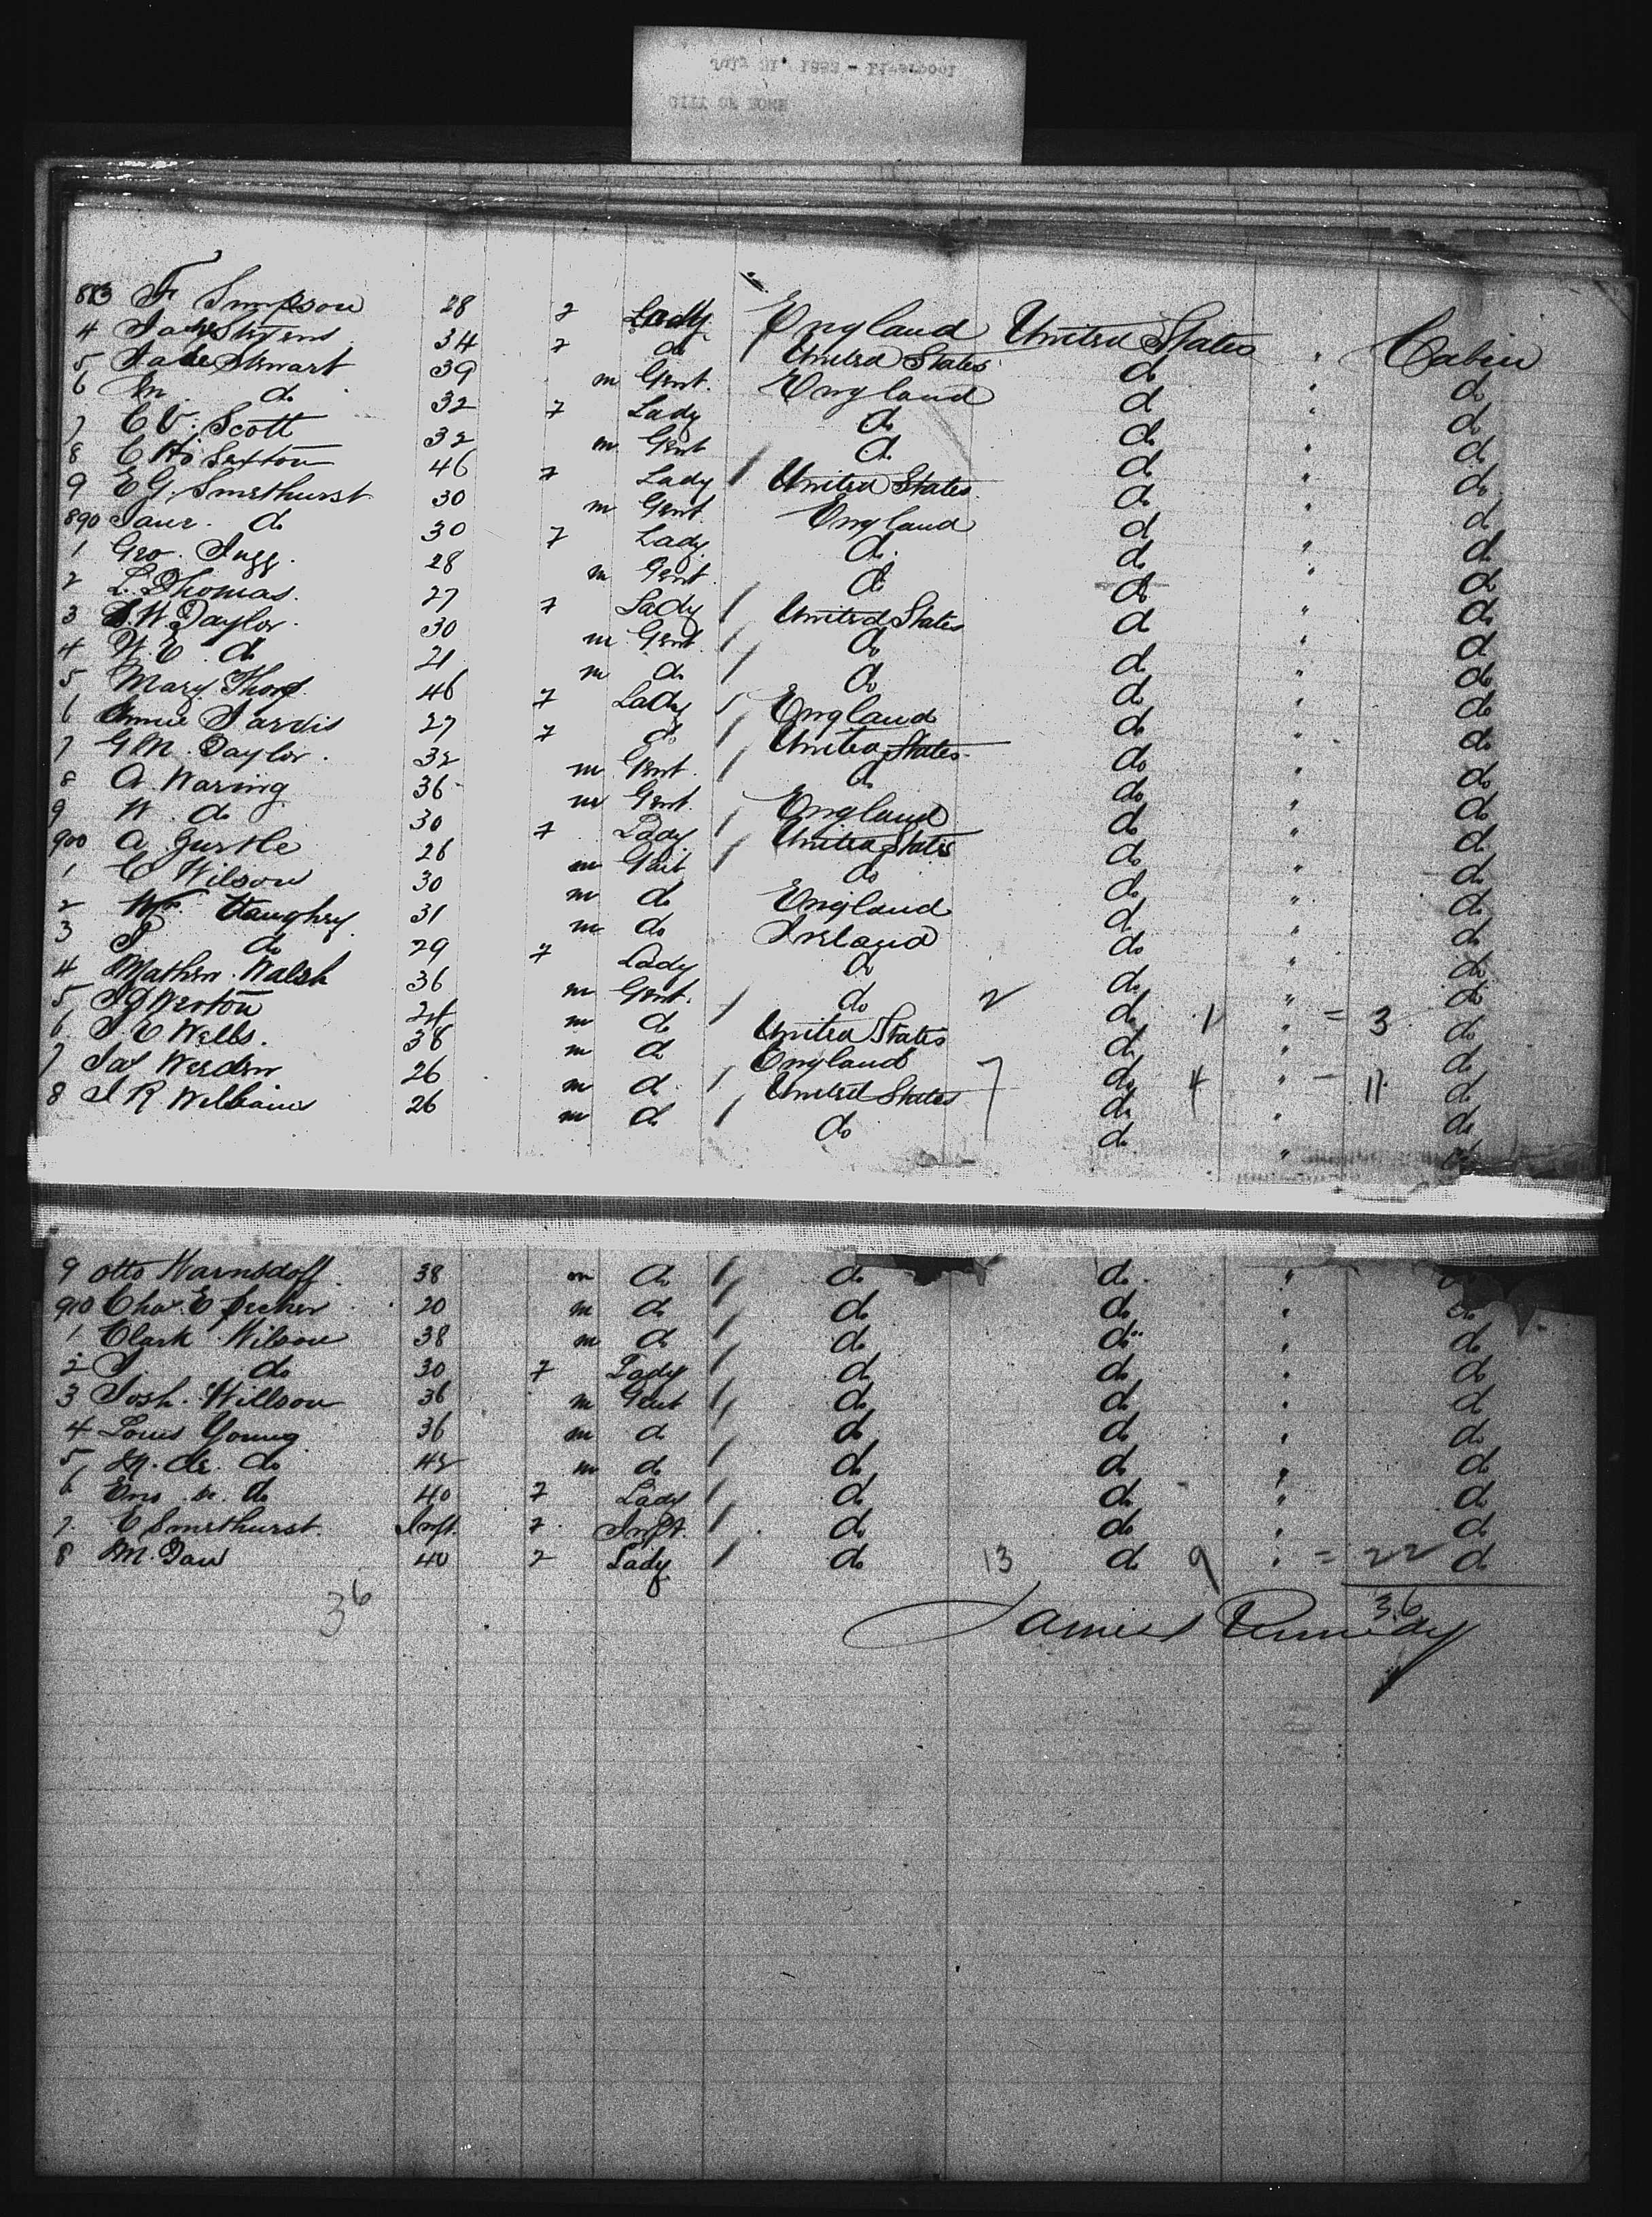 July 21" 1882 - Liverpool
CITY OF ROME
883 F Simpson 28 f Lady England United States " Cabin
4 Stevens 34 f do United States do " do
5 Stewart 39 m Gent. England do " do
6 M. do 32 f Lady do do " do
7 C V. Scott 32 m Gent do do " do
8 C H Sexton 46 f Lady United States do " do
9 E G. Smethurst 30 m Gent. England do " do
890 Jane. do 30 f Lady. do do " do
1 Geo. Tugg. 28 m Gent. do do " do
2 L. Thomas. 27 f Lady United States do " do
3 S. W Taylor. 30 m Gent. do do " do
4 W. E. do 21 m do do do " do
5 Mary Thorp. 46 f Lady England do " do
6 Annie Jarvis 27 f do United States do " do
7 G M. Taylor. 32 m Gent. do do " do
8 A. Waring 36 m Gent. England do " do
9 W. do 30 f Lady United States do " do
900 A. 26 m Gent do do " do
1 C Wilson 30 m do England do " do
2 Wm. Vaughey. 31 m do Ireland do " do
3 do 29 f Lady do do " do
4 Mathew. Walsh 36 m Gent. do 2 do 1 " = 3 do
5 Weston 24 m do United States do " do
6 J E Wells. 38 m do England do " do
7 Jas Werden 26 m do United States 7 do 4 " - 11 do
8 J R Williams 26 m do do do "
9 Otto Warnsdoff. 38 m do do do "
910 Chas. E Decker 20 m do do do " do
1 Clark Wilson 38 m do do do " do
2 J. do 30 f Lady do do " do
3 Josh. Willson 36 m Gent do do " do
4 Louis Young 36 m do do do " do
5 M. de. do 42 m do do do " do
6 do 40 f Lady do do " do
7. C Smethurst. Inft. f Inft. do do " do
8 M. Daw 40 f Lady do 13 do 9 " = 22 do
36 36
James Kennedy